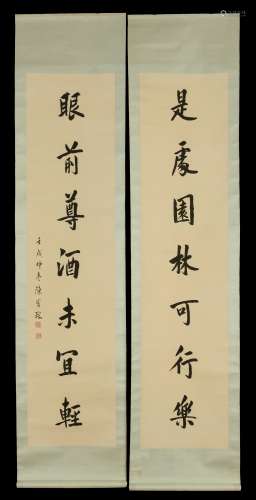 是處園林可行樂
眼前尊酒未宜輕
壬戌仲春陳